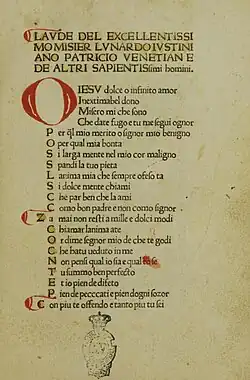 LAVDE DEL EXCELLENTISSI
MO MISIER LVNARDO IVSTINI
ANO PATRICIO VENETIAN E
DE ALTRI SAPIENTISsimi homini.
O IESV dolce o infinito amor
Inextimabel dono
Misero mi che sono
Che date fugo e tu me segui ognor
Per q̃l mio merito o signor mio benigno
O per qual mia bonta
Si larga mente nel mio cor maligno
Spandi la tuo pieta
Lanima mia che sempre ofeso ta
Si dolce mente chiami
Che par ben che la ami
Como bon padre e non como signor
Za mai non resti a mille e dolci modi
Chiamar lanima ate
Or dime segnor mio de che te godi
Che hatu ueduto in me
Non pensi qual io sia e qual
Tu summo ben perfecto
E tio pien de difeto
Pien de peccati e pien dogni
Con piu te offendo e tanto piu tu sei